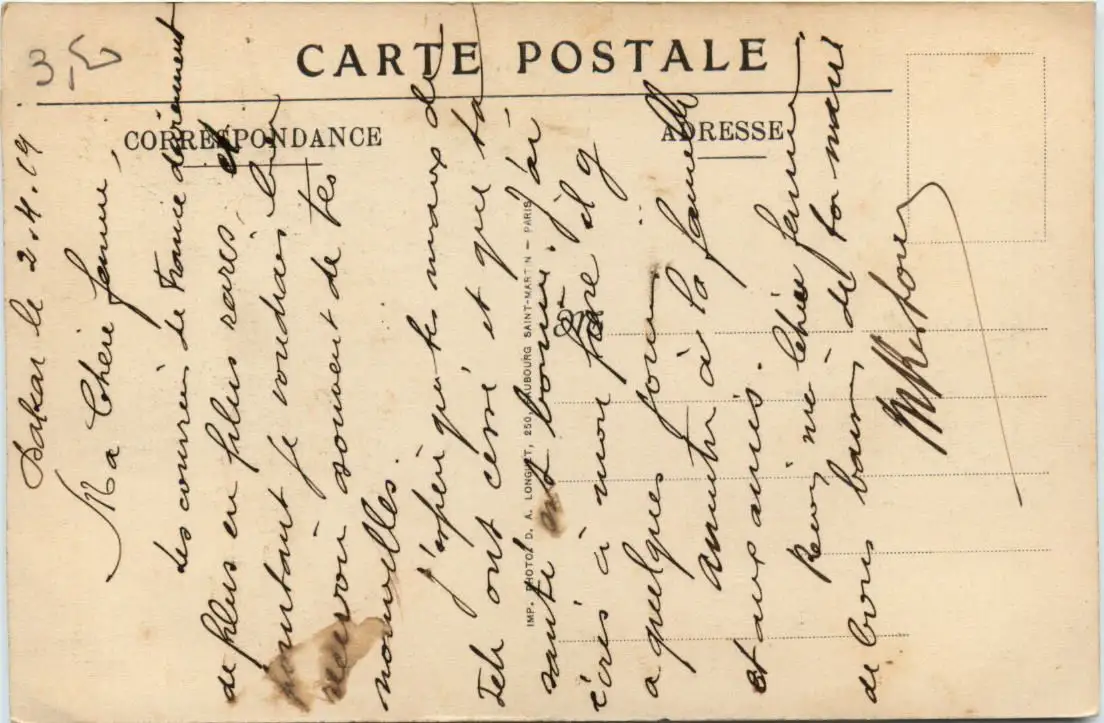 3-50
CARTE POSTALE
CORRESPONDANCE
ADRESSE
M
IMP. PHOTO. D. A. LONGUET, 250, FAUBOURG SAINT-MARTIN — PARIS
Dakar le 2.4.19
Ma Cheré femme,
Les courriers de France deviennent
de plus en plus rares et
pourtant je voudrais bien
recevoir souvent de tes
nouvelles.
J'espère que tes maux de
tete ont cessé et que ta
santé est bonne. J'ai
écris à mon frère il y
a quelques jours
à la famille
et aux amis.
Recois ma chère femme
de bons baisers de ton mari